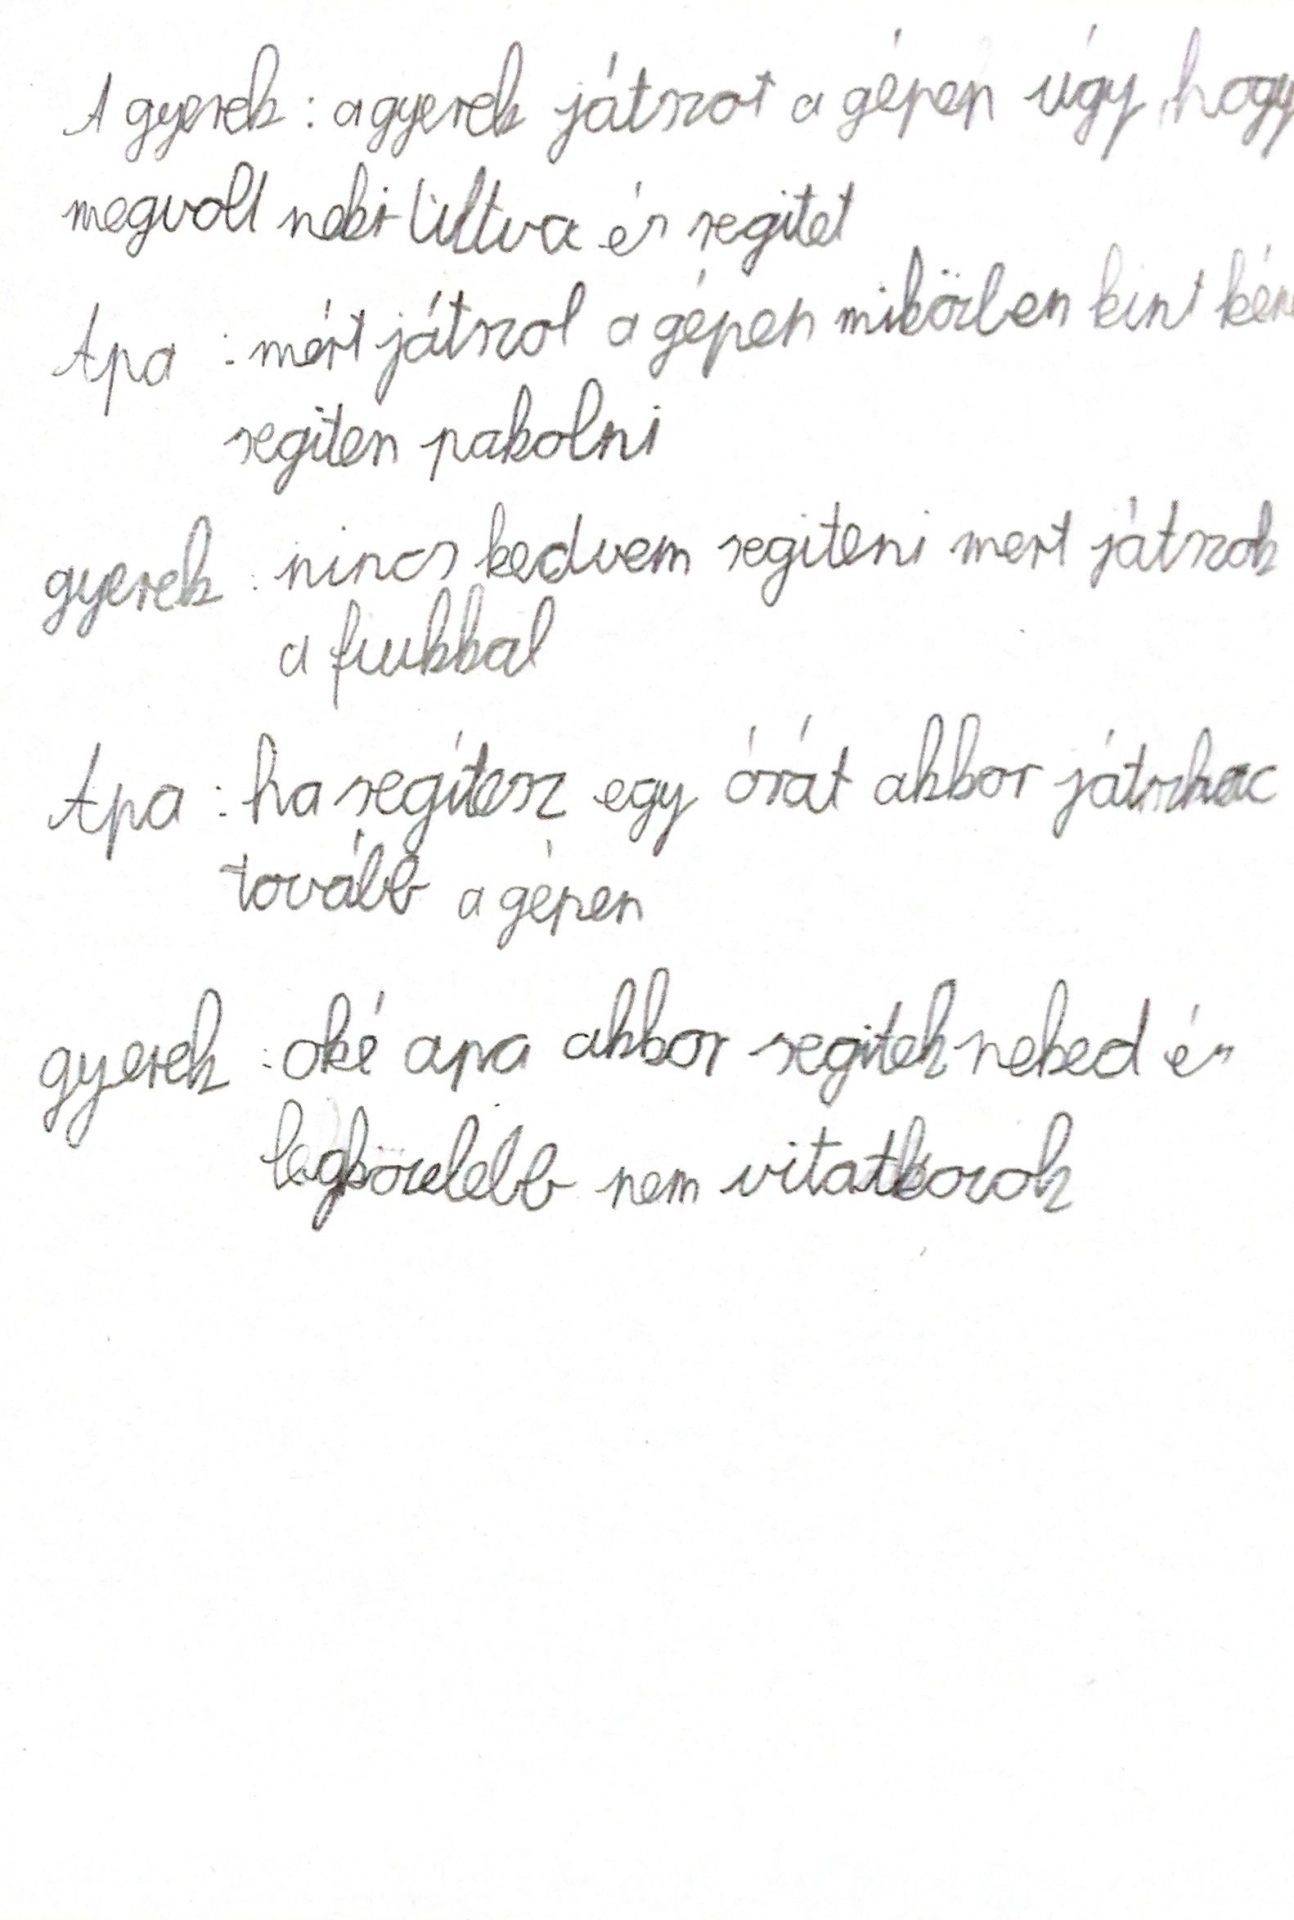 A gyerek : a gyerek játszot a gépen úgy hogy
megvolt neki tiltva és segitet
Apa : mért játszol a gépen miközben kint
segiten pakolni
gyerek : nincs kedvem segiteni mert játszok
a fiukkal
Apa : ha segítesz egy órát akkor játszhac
tovább a gépen
gyerek : oké apa akkor segitek neked és
legközelebb nem vitatkozok